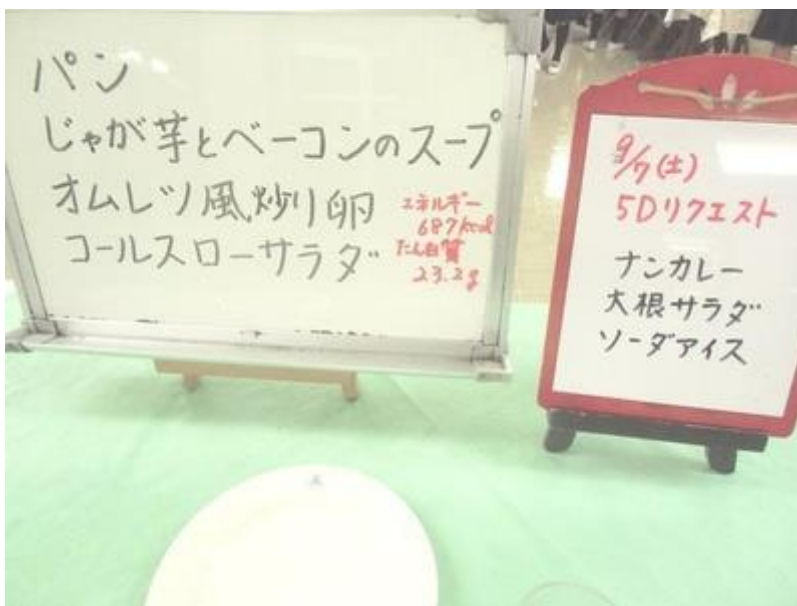 パン
じゃが芋とベーコンのスープ
オムレツ風炒り卵
コールスローサラダ
エネルギー
687kcal
たん白質
23.2g
9/7(土)
5Dリクエスト
ナンカレー
大根サラダ
ソーダアイス